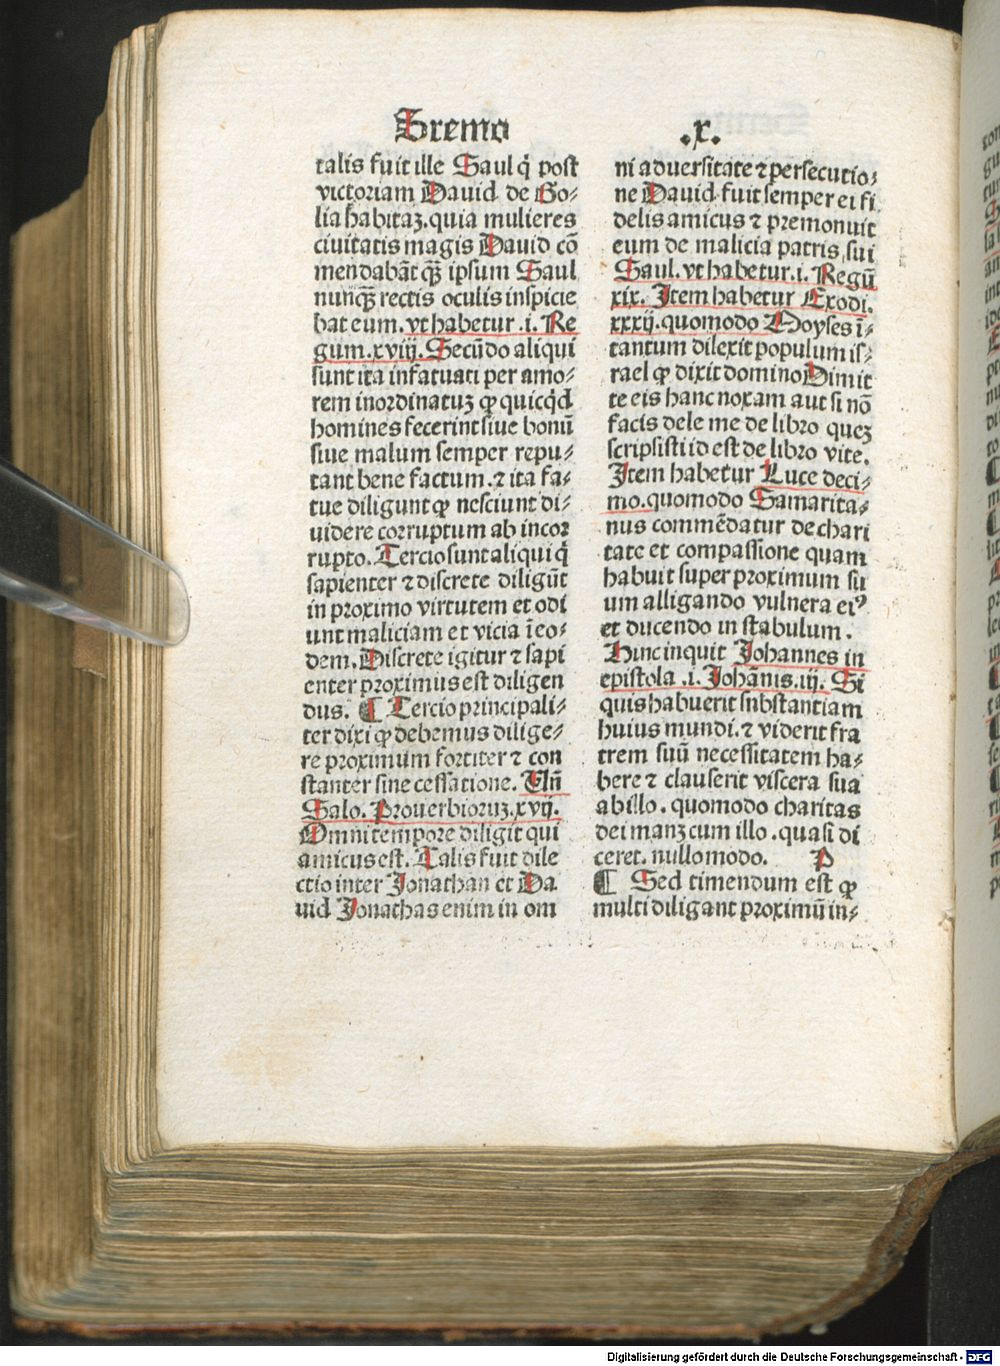 Sremo
.x.
talis fuit ille Saul q̇ post
victoriam Dauid de Go-
lia habitaꝫ. quia mulieres
ciuitatis magis Dauid cō
mendabāt qꝫ̄ ipsum Saul
nunqꝫ̄ rectis oculis inspicie
bat eum. vt habetur .i. Re
gum. xviij. Secūdo aliqui
sunt ita infatuati per amo-
rem inordinatuꝫ ꝙ quicq̇d
homines fecerint siue bonū
siue malum semper repu-
tant bene factum. ⁊ ita fa-
tue diligunt ꝙ nesciunt di-
uidere corruptum ab incor
rupto. Tercio sunt aliqui q̇
sapienter ⁊ discrete diligūt
in proximo virtutem et odi
unt maliciam et vicia ī eo-
dem. Discrete igitur ⁊ sapi
enter proximus est diligen
dus. ¶ Tercio principali-
ter dixi ꝙ debemus dilige-
re proximum fortiter ⁊ con
stanter sine cessatione. Vn̄
Salo. Prouerbioruꝫ. xvij.
Omni tempore diligit qui
amicus est. Talis fuit dile
ctio inter Jonathan et Da
uid Jonathas enim in om
ni aduersitate ⁊ persecutio-
ne Dauid fuit semper ei fi
delis amicus ⁊ premonuit
eum de malicia patris sui
Saul. vt habetur. i. Regū
xix. Item habetur Exodi.
xxxij. quomodo Moyses ī-
tantum dilexit populum is-
rael ꝙ dixit domino Dimit
te eis hanc noxam aut si nō
facis dele me de libro queꝫ
scripsisti id est de libro vite.
Item habetur Luce deci-
mo. quomodo Samarita-
nus commēdatur de chari
tate et compassione quam
habuit super proximum su
um alligando vulnera eiꝰ
et ducendo in stabulum.
Hinc inquit Johannes in
epistola .i. Johānis. iij. Si
quis habuerit substantiam
huius mundi. ⁊ viderit fra
trem suū necessitatem ha-
bere ⁊ clauserit viscera sua
ab illo. quomodo charitas
dei manꝫ cum illo. quasi di
ceret. nullo modo. P
¶ Sed timendum est ꝙ
multi diligant proximū in-
Digitalisierung gefördert durch die Deutsche Forschungsgemeinschaft - DFG